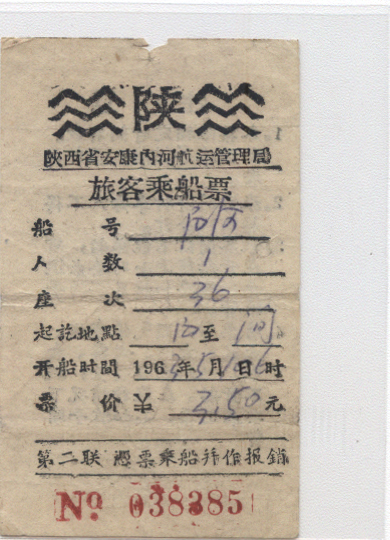 陕
陕西省安康内河航运管理局
旅客乘船票
船 号
人 数 1
座 次 36
起訖地點 至
开船时間 196 年 5月 日 6时
票 价 3.50元
第二联 凭票乘船并作报銷
No 038385